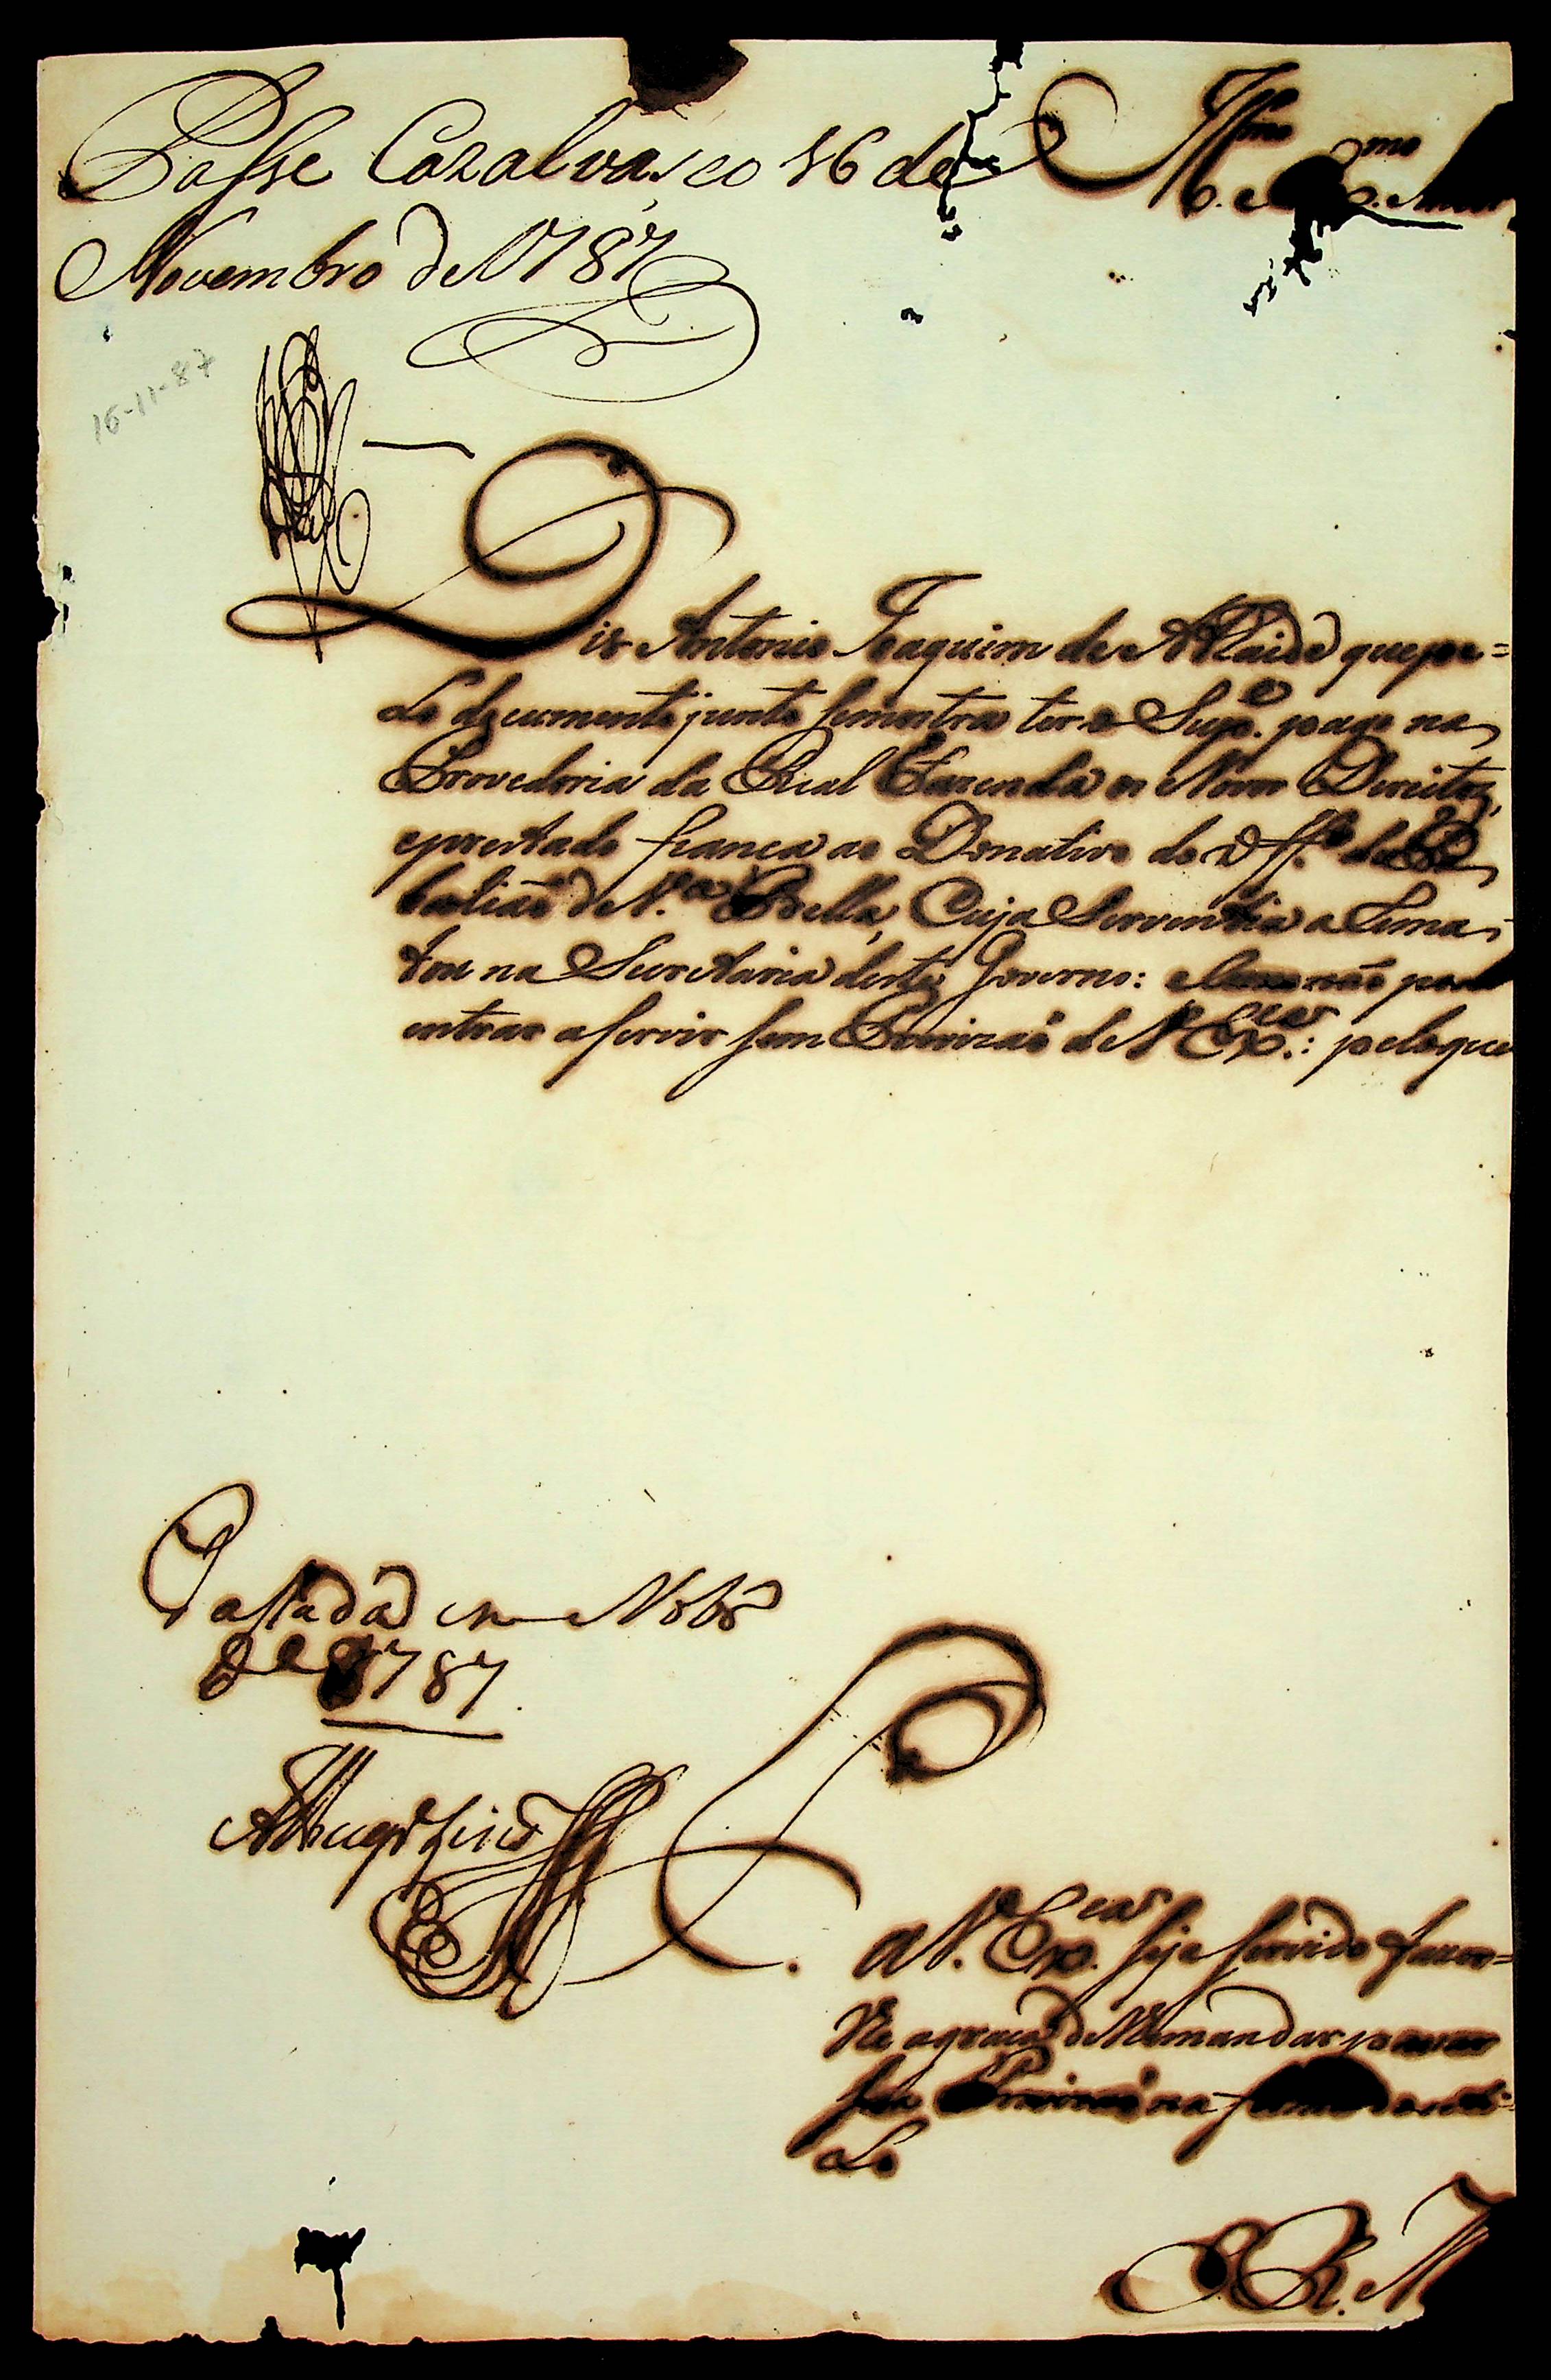 Passe Cazalvasco 16 de
Novembro de 1787
Ill.mo e
16-11-87
Dis Antonio Joaquim de Attaide que pe=
Lo documento junto semostra ter o Sup.e pago na
Provedoria da Real Fazenda os Novos Direitos,
eprestado fiança ao Donativo do Off.o de Ta
balião de V.a Bella, Cuja Serventia a Rema-
tou na Secretaria deste Governo: e não pode
entrar aservir sem Provizaõ de V Ex.cia: peloque
Passada em Nobr
de 1787.
P.
a V. Ex.cia seja servido fazer=
lhe agraça de Mandar passar
sua Provizaõ na forma do esti-
Lo
E. R. M